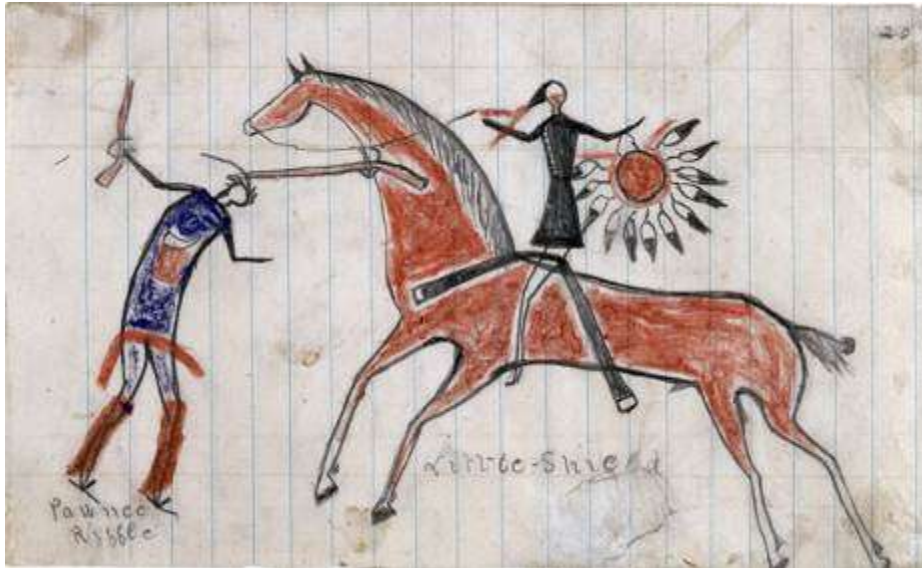 20
Little-Shield
Pawnee
Riffle